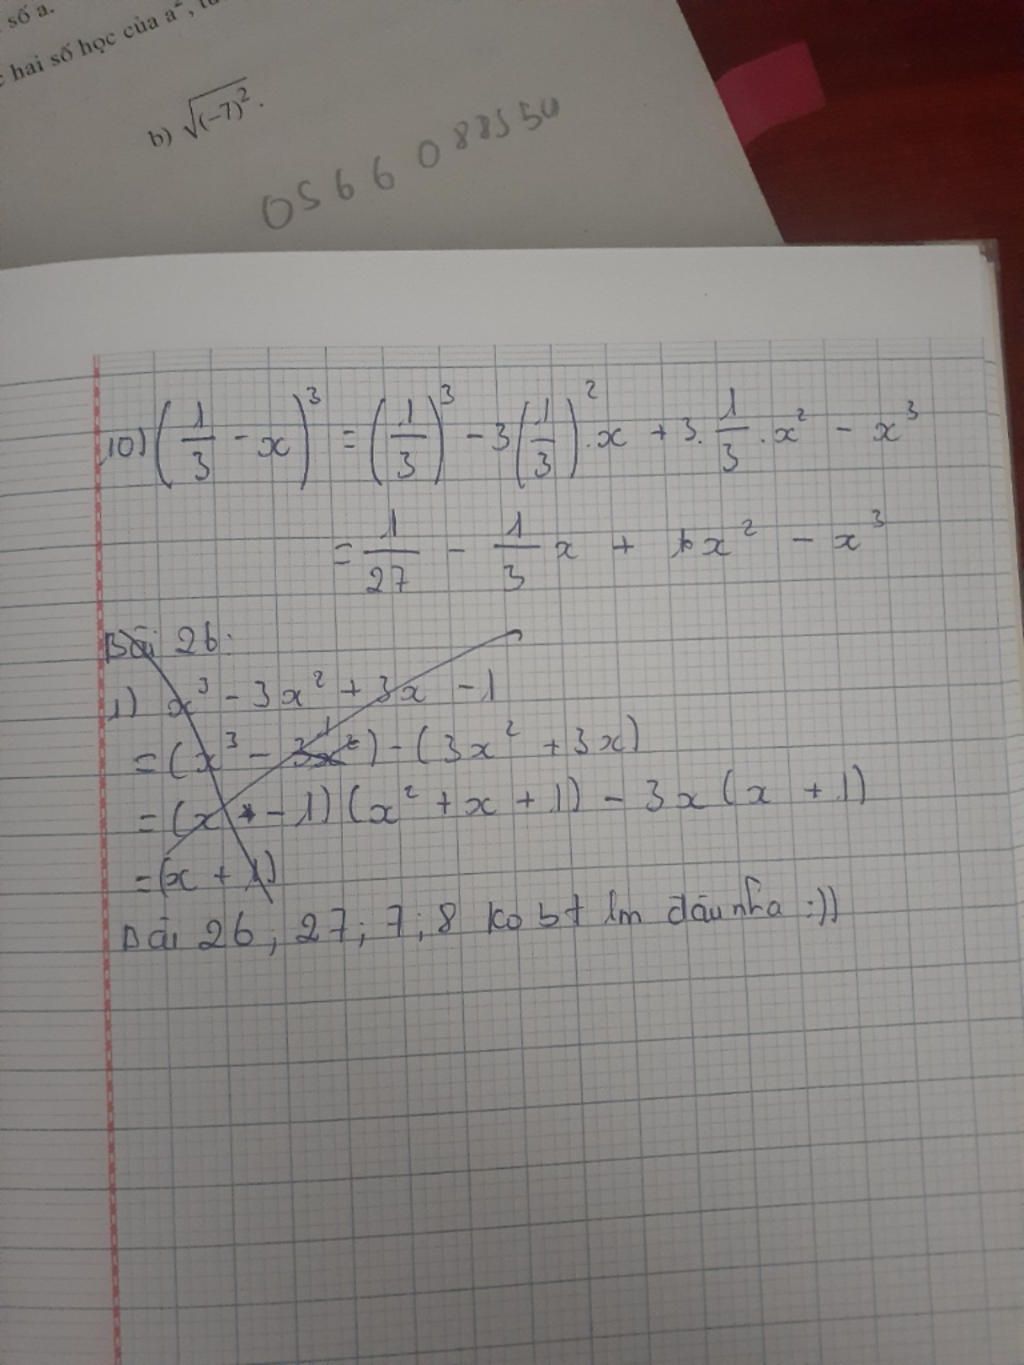 số a.
hai số học của a²,
b) √(-7)².
0566088550
10) (1/3 - x)³ = (1/3)³ - 3(1/3)².x + 3.1/3.x² - x³
= 1/27 - 1/3 x + x² - x³
Bài 26:
1) x³ - 3x² + 3x - 1
= (x³ - 1) - (3x² + 3x)
= (x - 1)(x² + x + 1) - 3x(x + 1)
= (x + 1)
Bài 26; 27; 7; 8 ko bt lm đâu nha :))